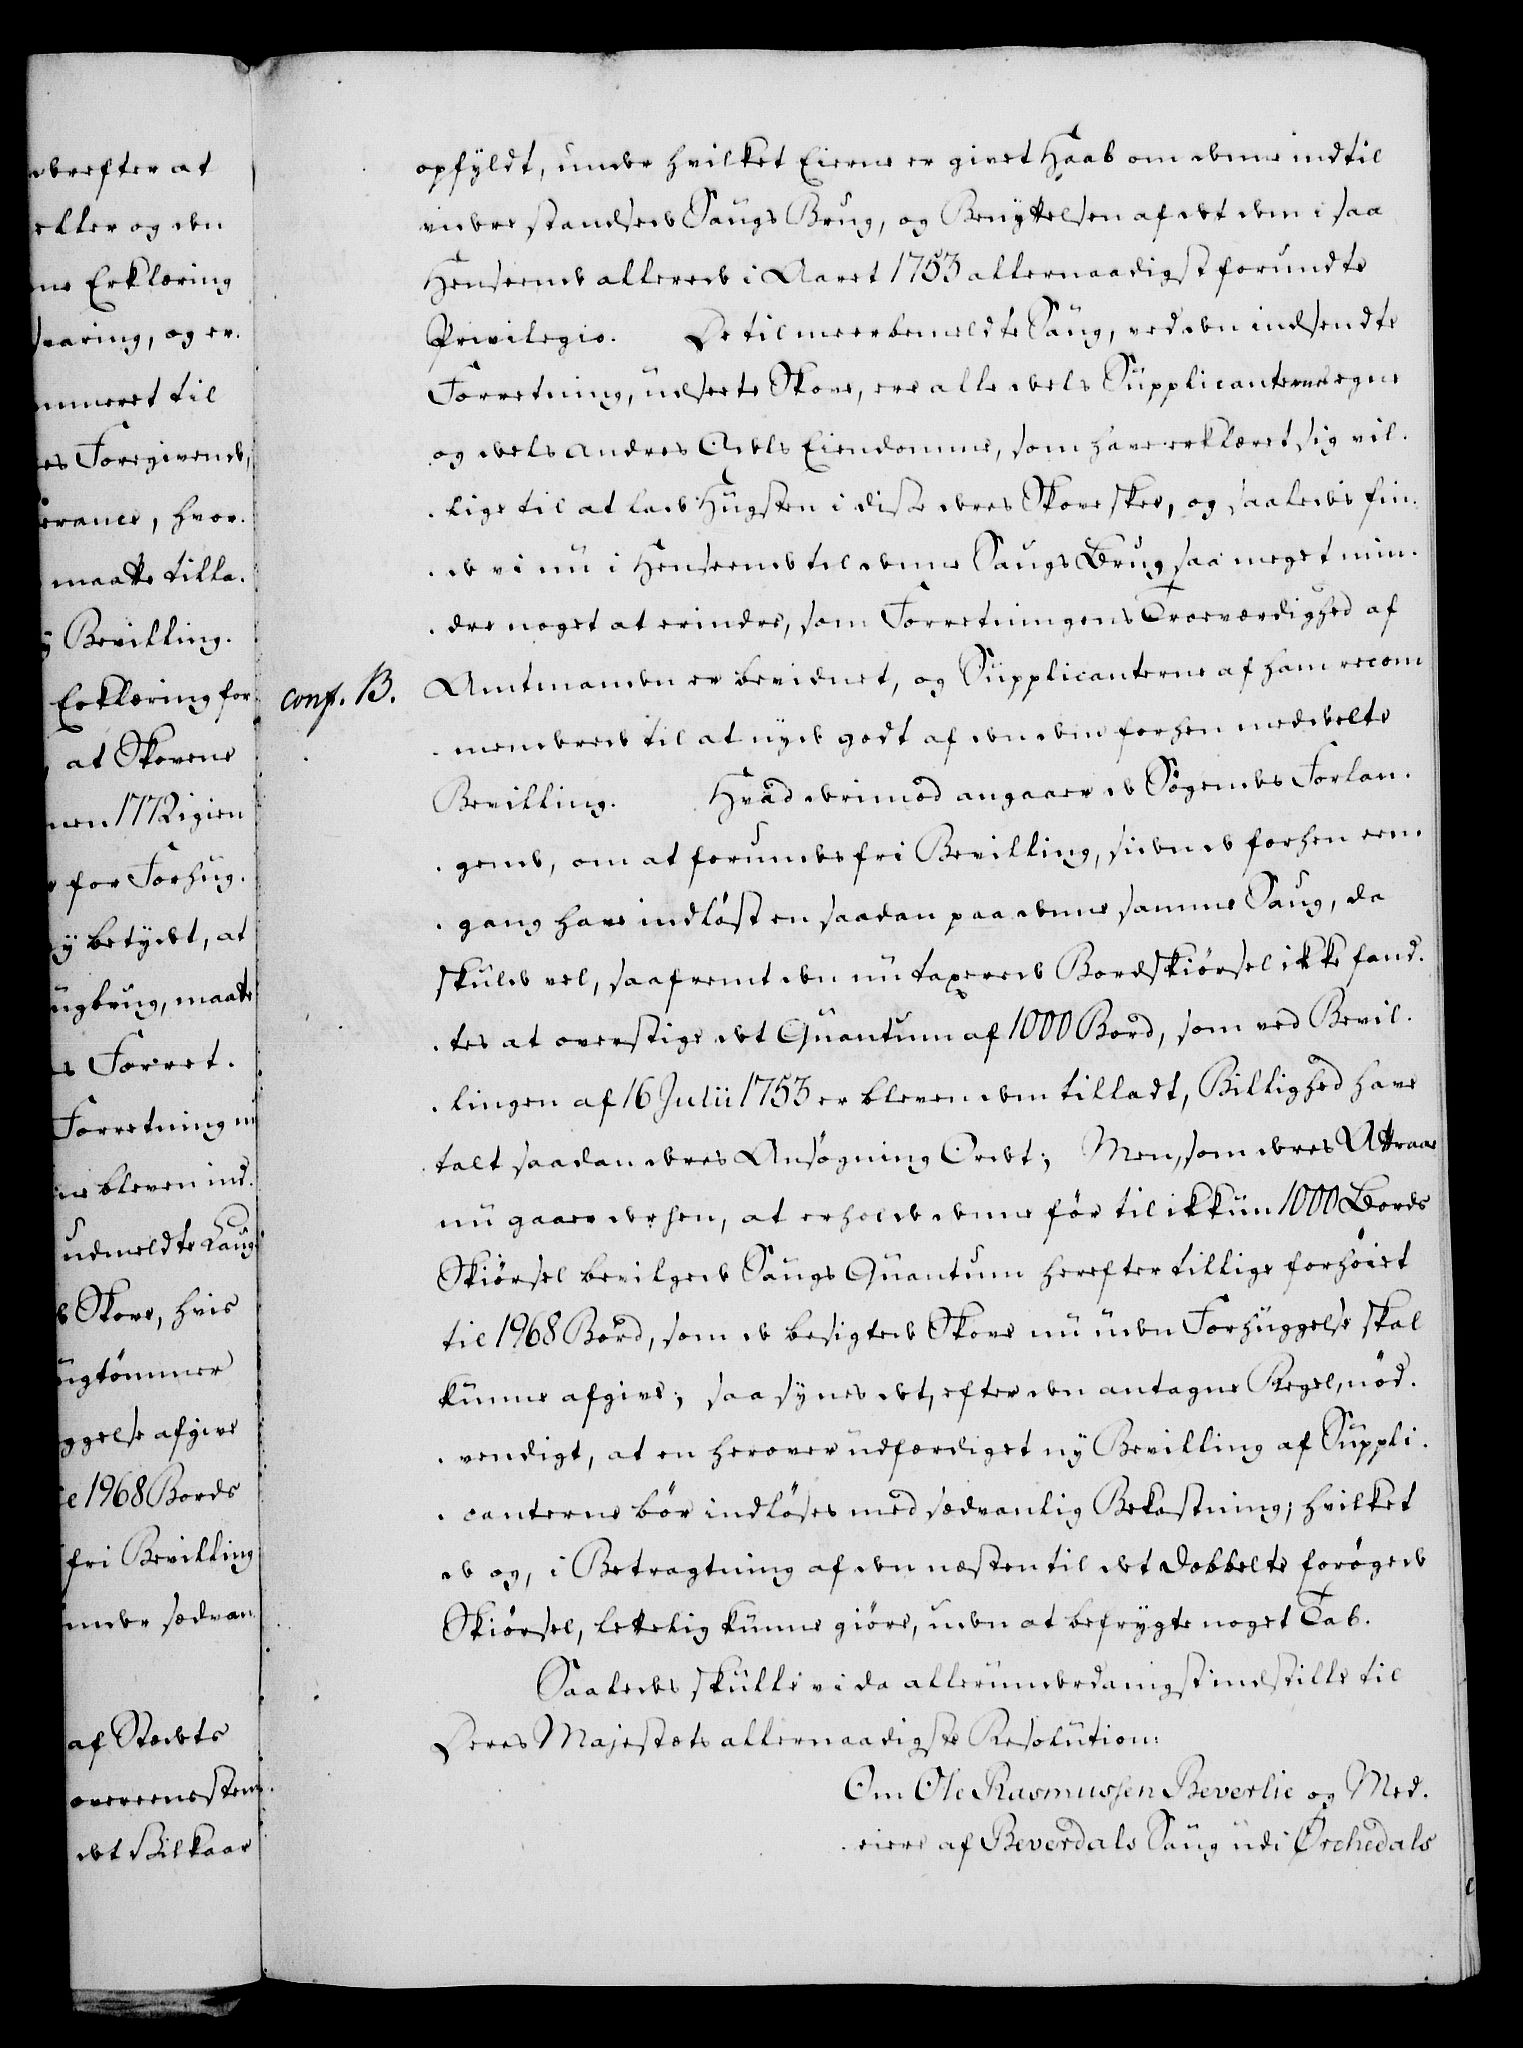 derefter at
eller og den
ne Erklæring
svaring, og er.
mmeret til
es Foregivende,
erance, hvor.
maatte tilla.
g Bevilling.
Erklæring for
at Skovene
nen 1772 igien
for Forhug.
y betydet, at
ugbrug, maatte
s Forret.
Forretning nu
ne bleven ind.
udmeldte Laug.
e Skove, hvis
ugtømmer
ggelse afgive
e 1968 Bords
fri Bevilling
under sædvan.
af Stædets
overeensstem.
det Vilkaar
opfyldt, under hvilket Eierne er givet Haab om denne indtil
videre standsede Saugs Brug, og Benyttelsen af det dem i saa
Henseende allerede i Aaret 1753 allernaadigst forundte
Privilegio. De til meerbemeldte Saug, ved den indsendte
Forretning, udseete Skove, ere alle deels Supplicanternes egne
og deels andres Odels Eiendomme, som have erklæret sig vil.
lige til at lade Hugsten i disse deres Skove skee, og saaledes fin.
de vi nu i Henseende til denne Saugs Brug saa meget min.
dre noget at erindre, som Forretningens Troeværdighed af
conf. B.
Amtmanden er bevidnet, og Supplicanterne af ham recom
menderede til at nyde godt af den dem forhen meddeelte
Bevilling. Hvad derimod angaaer de Søgendes Forlan.
gende, om at forundes fri Bevilling, siden de forhen een.
gang have indløst en saadan paa denne samme Saug, da
skulde vel, saafremt den nu taxerede Bordskiørsel ikke fand.
tes at overstige det Quantum af 1000 Bord, som ved Bevil.
lingen af 16 Julii 1753 er bleven dem tilladt, Billighed have
talt saadan deres Ansøgning Ordet; Men, som deres Attraae
nu gaaer derhen, at erholde denne før til ikkun 1000 Bords
Skiørsel bevilgede Saugs Quantum herefter tillige forhøiet
til 1968 Bord, som de besigtede Skove nu uden Forhuggelse skal
kunne afgive; saa synes det, efter den antagne Regel, nød.
vendigt, at en herover udfærdiget ny Bevilling af Suppli.
canterne bør indløses med sædvanlig Bekostning; hvilket
de og, i Betragtning af den næsten til det dobbelte forøgede
Skiørsel, lettelig kunne giøre, uden at befrygte noget Tab.
Saaledes skulle vi da allerunderdanigst indstille til
Deres Majestæts allernaadigste Resolution:
Om Ole Rasmussen Beverlie og Med.
eiere af Beverdals Saug udi Ørchedals